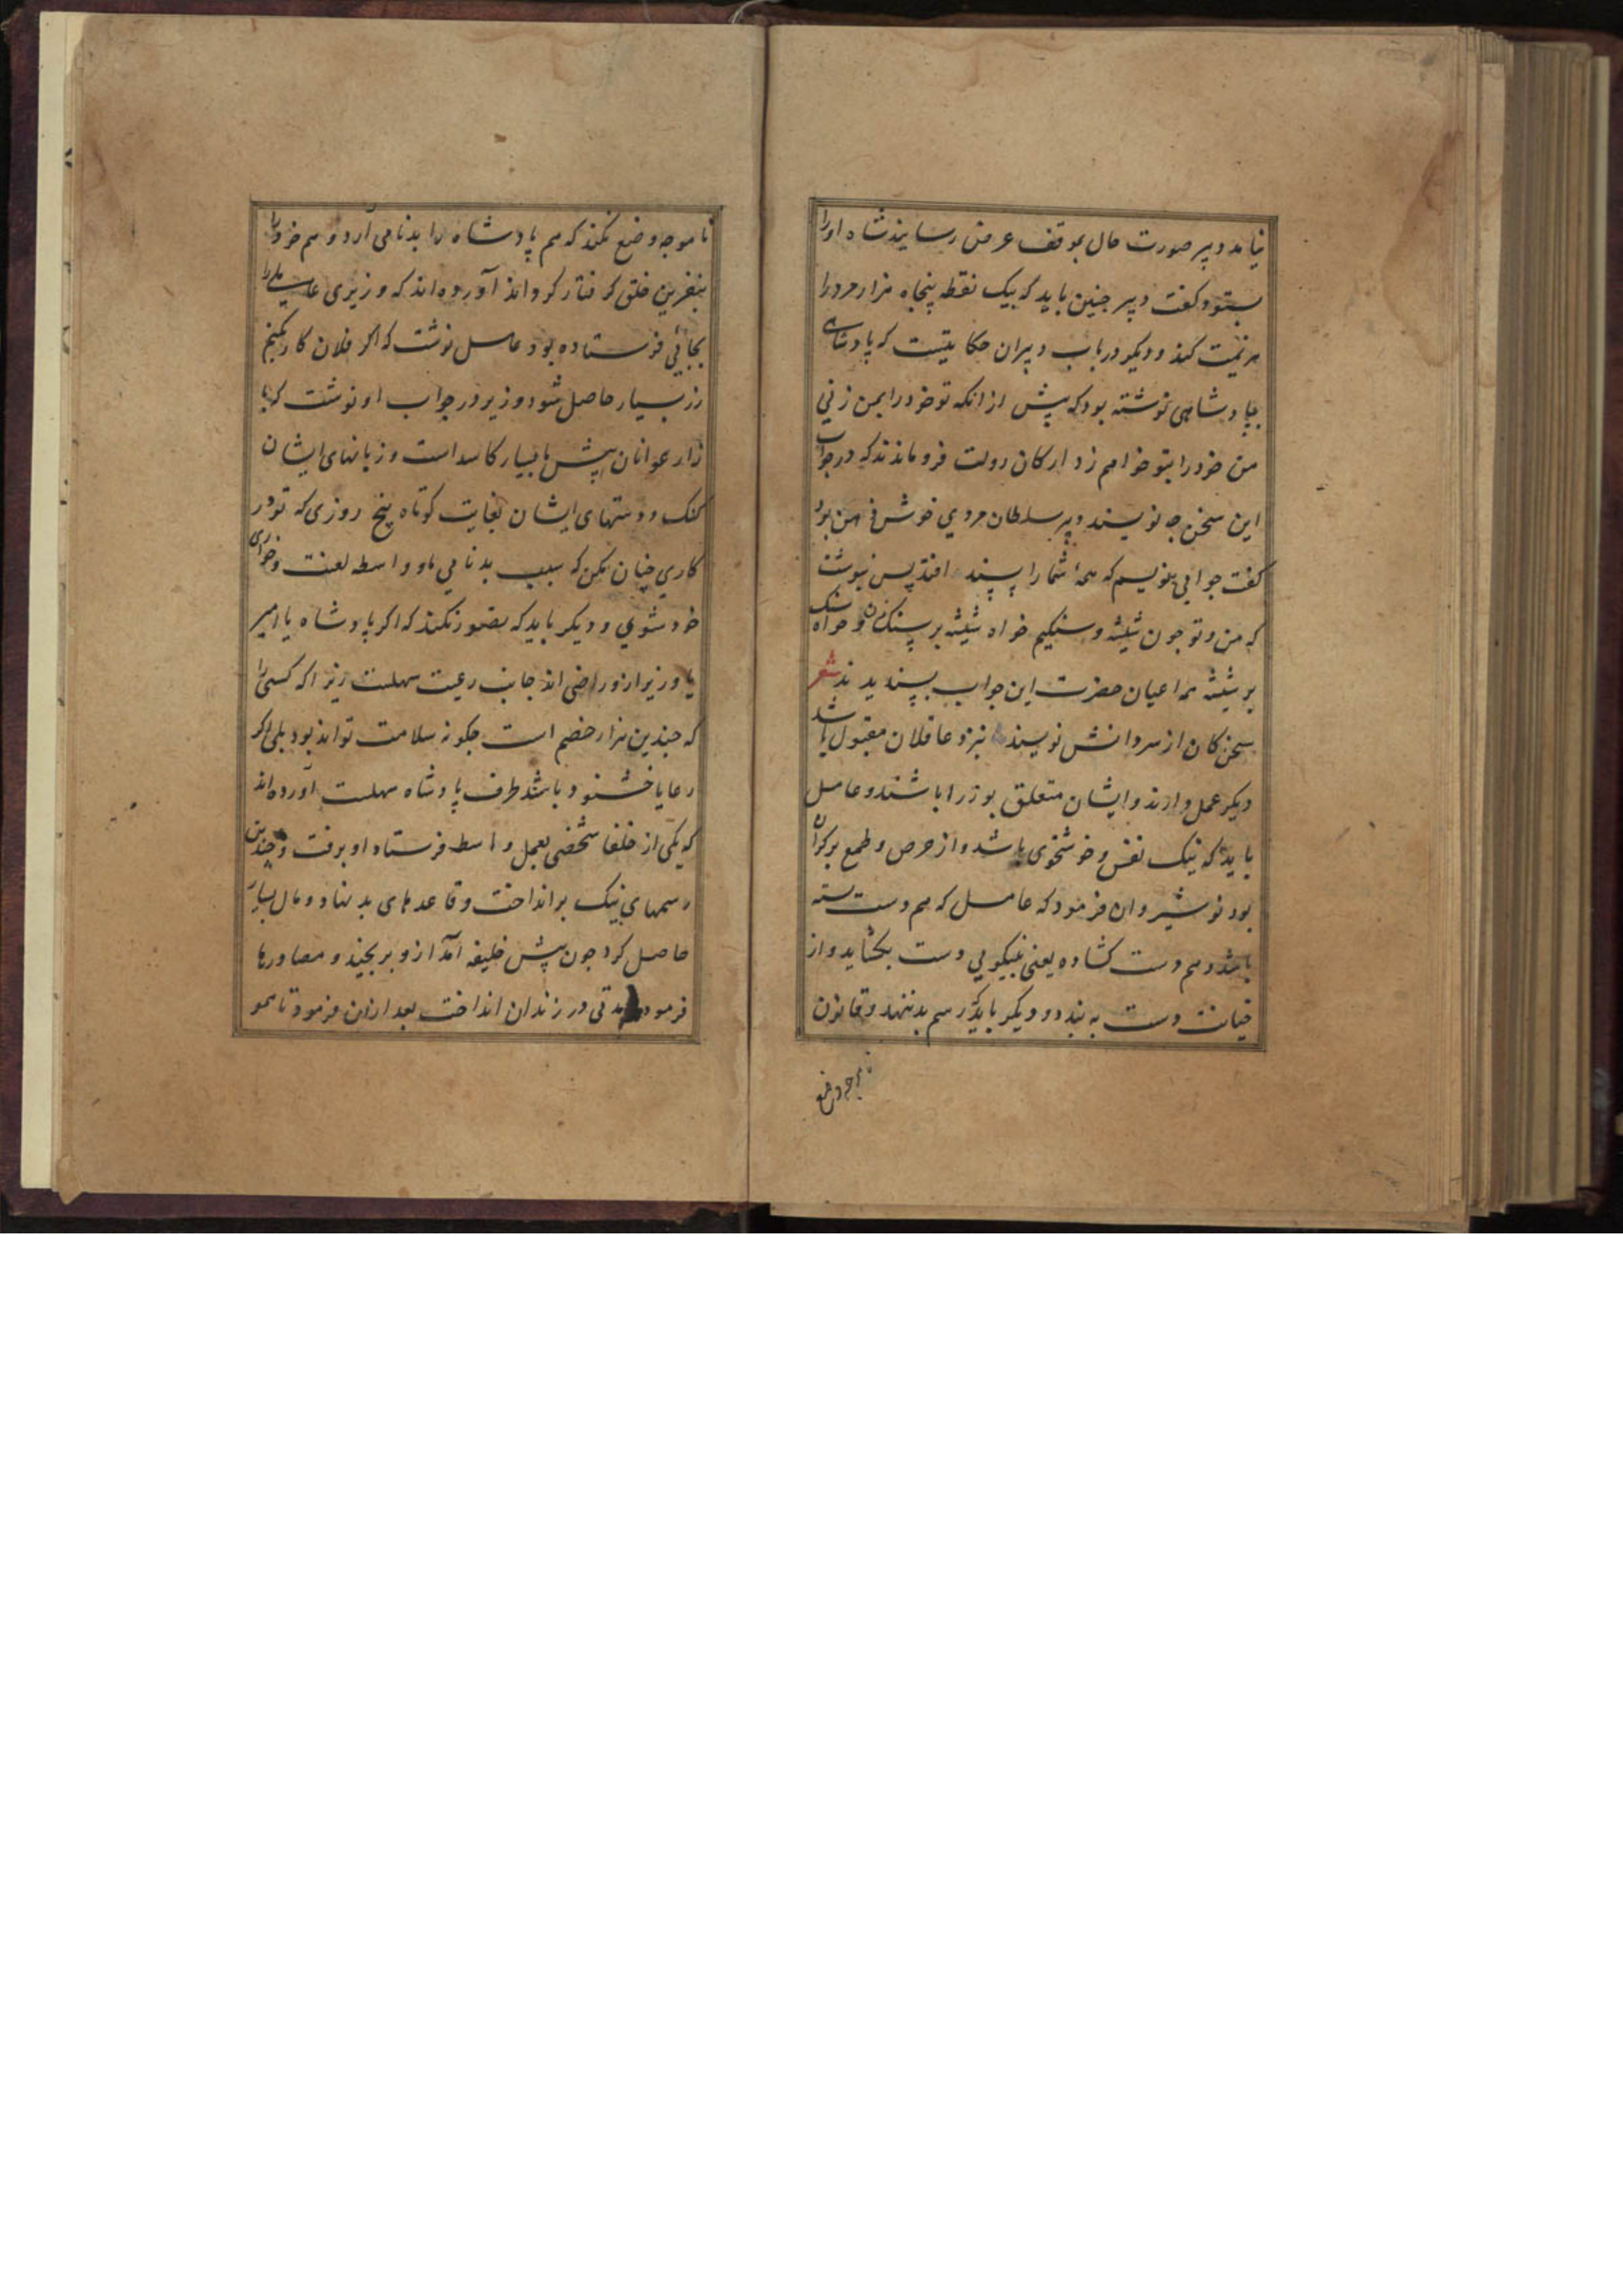 نیامد دبیر صورت حال بموقف عرض رسانید شاه اورا
بستود و کفت دبیر چنین باید که بیک نقطه پنجاه هزار مردرا
هزیمت کند و دیکر در باب دبیران حکایتیست که پادشاهی
بپادشاهی نوشته بود که پیش از انکه تو خودرا بمن زنی
من خودرا بتو خواهم زد ارکان دولت فرو ماندند که در جواب
این سخن چه نویسند دبیر سلطان مردی خوش ذهن بود
کفت جوابی بنویسم که همه شمارا پسند افتد پس نبوشت
که من و تو چون شیشه و سنکیم خواه شیشه بر سنک زن و خواه سنک
بر شیشه همه اعیان حضرت این جواب بپسندیدند شعر
سخن کان از سر دانش نویسند نزد عاقلان مقبول باشد
دیکر عمل دارند و ایشان متعلق بوزرا باشند و عامل
باید که نیک نفس و خوشخوی باشد و از حرص و طمع بر کران
بود نوشیروان فرمود که عامل که هم دست بسته
باشد و هم دست کشاده یعنی بنیکویی دست بکشاید و از
خیانت دست به بندد و دیکر باید که رسم بد ننهد و قانون
ناموجه وضع
ناموجه وضع نکند که هم پادشاه را بدنامی آرد و هم خودرا
بنفرین خلق کرفتار کرداند آورده‌اند که وزیری عاملی را
بجائی فرستاده بود عامل نوشت که اکر فلان کار بکنیم
زر بسیار حاصل شود وزیر در جواب او نوشت که با
زار عوانان پیش ما بسیار کاسد است و زبانهای ایشان
کنک و دستهای ایشان بغایت کوتاه پنج روزی که تو در
کاری چنان مکن که سبب بدنامی ما و واسطه لعنت و خواری
خود شوی و دیکر باید که تصور نکند که اکر پادشاه یا امیر
یا وزیر ازو راضی اند جانب رعیت سهلست زیرا که کسی را
که چندین هزار خصم است چکونه سلامت تواند بود بلی اکر
رعایا خشنود باشند طرف پادشاه سهلست آورده‌اند
که یکی از خلفا شخصی بعمل واسط فرستاد او برفت و چندین
رسمهای نیک بر انداخت و قاعدهای بد نهاد و مال بسیار
حاصل کرد چون پیش خلیفه آمد ازو برنجید و مصادرها
فرمود مدتی در زندان انداخت بعد ازان فرمود تا همو